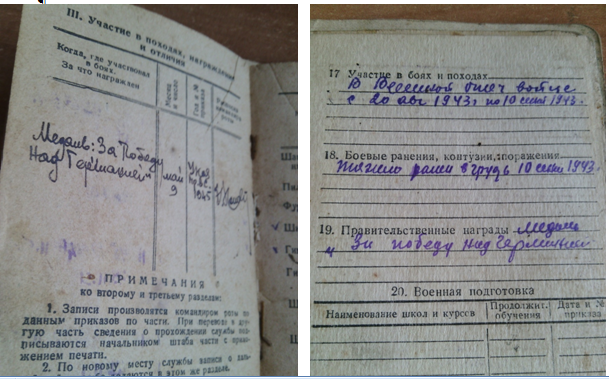 III. Участие в походах, награждения
и отличия
Когда, где участвовал
в боях.
За что награжден
Месяц
и число
Год и №
приказа
Медаль: За Победу
над Германией"
май
9
Указ
1945
ПРИМЕЧАНИЯ
ко второму и третьему разделам:
1. Записи производятся командиром роты по
данным приказов по части. При переводе в дру-
гую часть сведения о прохождении службы под-
писываются начальником штаба части с прило-
жением печати.
2. По новому месту службы записи о даль-
в этом же разделе.
17 Участие в боях и походах
В Великой отеч войне
с 20 авг 1943г по 10 сент 1943.
18. Боевые ранения, контузии, поражения
Тяжело ранен в грудь 10 сент 1943.
19. Правительственные награды Медаль
" За победу над Германией
20. Военная подготовка
Наименование школ и курсов
Продолжит.
обучения
Дата и №
приказа